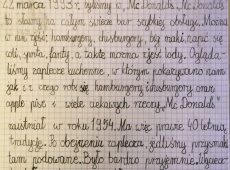 22 marca 1993r. byliśmy w „Mc Donalds". „Mc Donalds" to
słynny na całym świecie bar szybkiej obsługi. Można
w nim zjeść hamburgery, chisburgery, big maki. Napić się
coli, sprita, fanty, a także można zjeść lody. Ogląda-
liśmy zaplecze kuchenne, w którym pokazywano nam
jak i z czego robi się hamburgery, chisburgery oraz
apple pist i wiele ciekawych rzeczy. „Mc Donald"
zaistniał w roku 1954. Ma więc prawie 40 letnią
tradycję. Po obejrzeniu zaplecza, jedliśmy przysmaki
tam podawane. Było bardzo przyjemnie.